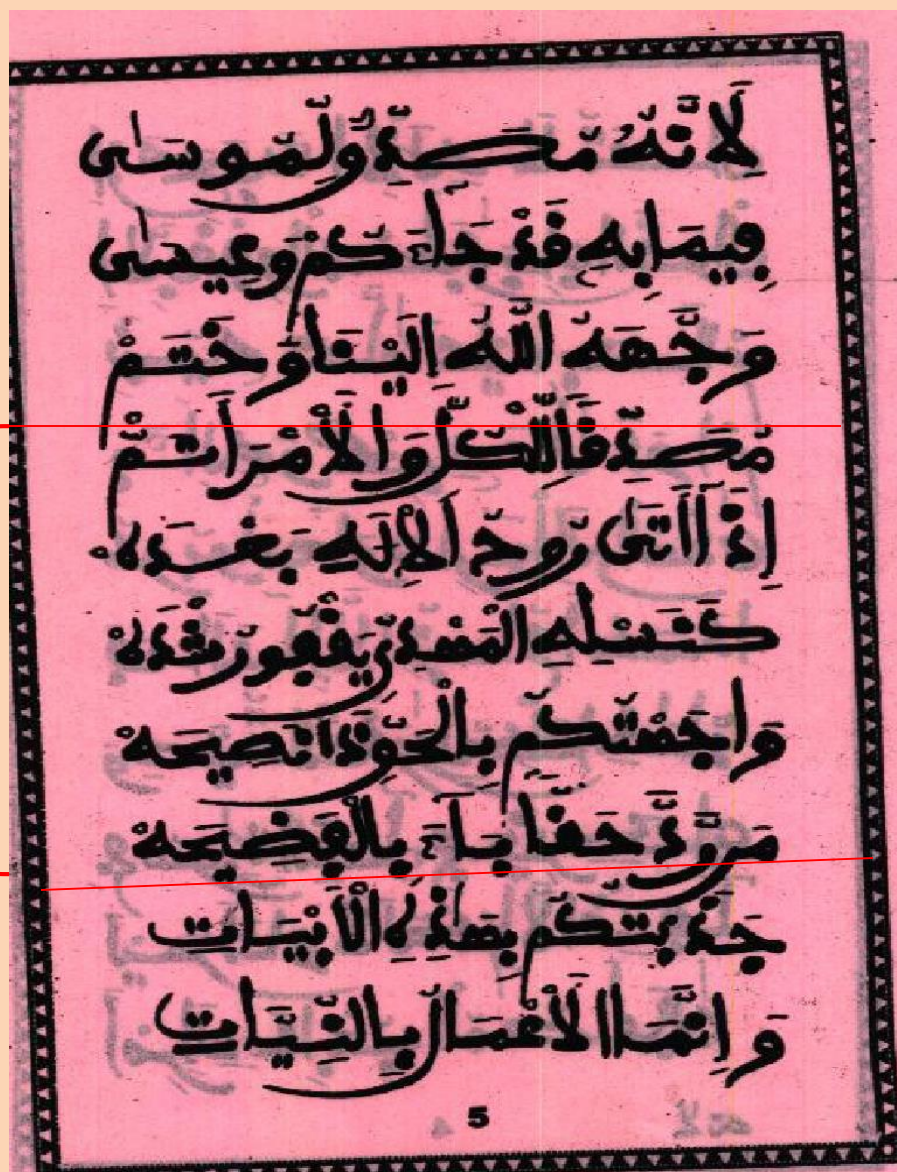 لِأَنَّهُ مُصَدِّقٌ لِّمُوسَىٰ
فِيمَا بِهِ قَدْ جَاءَكُمْ وَعِيسَىٰ
وَجَّهَهُ اللَّهُ إِلَيْنَا وَخَتَمْ
مُصَدِّقًا لِّلْكُلِّ وَالْأَمْرَ أَتَمْ
إِذَا أَتَىٰ رُوحُ الْإِلَٰهِ بَعْدَهُ
كَنَسْلِهِ الْمَهْدِيِّ يَقْفُو رُشْدَهُ
وَاجَهْتُكُمْ بِالْحَقِّ ذَا نَصِيحَهْ
مَن رَّدَّ حَقًّا بَاءَ بِالْفَضِيحَهْ
جَذَبْتُكُمْ بِهَٰذِهِ الْأَبْيَاتِ
وَإِنَّمَا الْأَعْمَالُ بِالنِّيَّاتِ
5